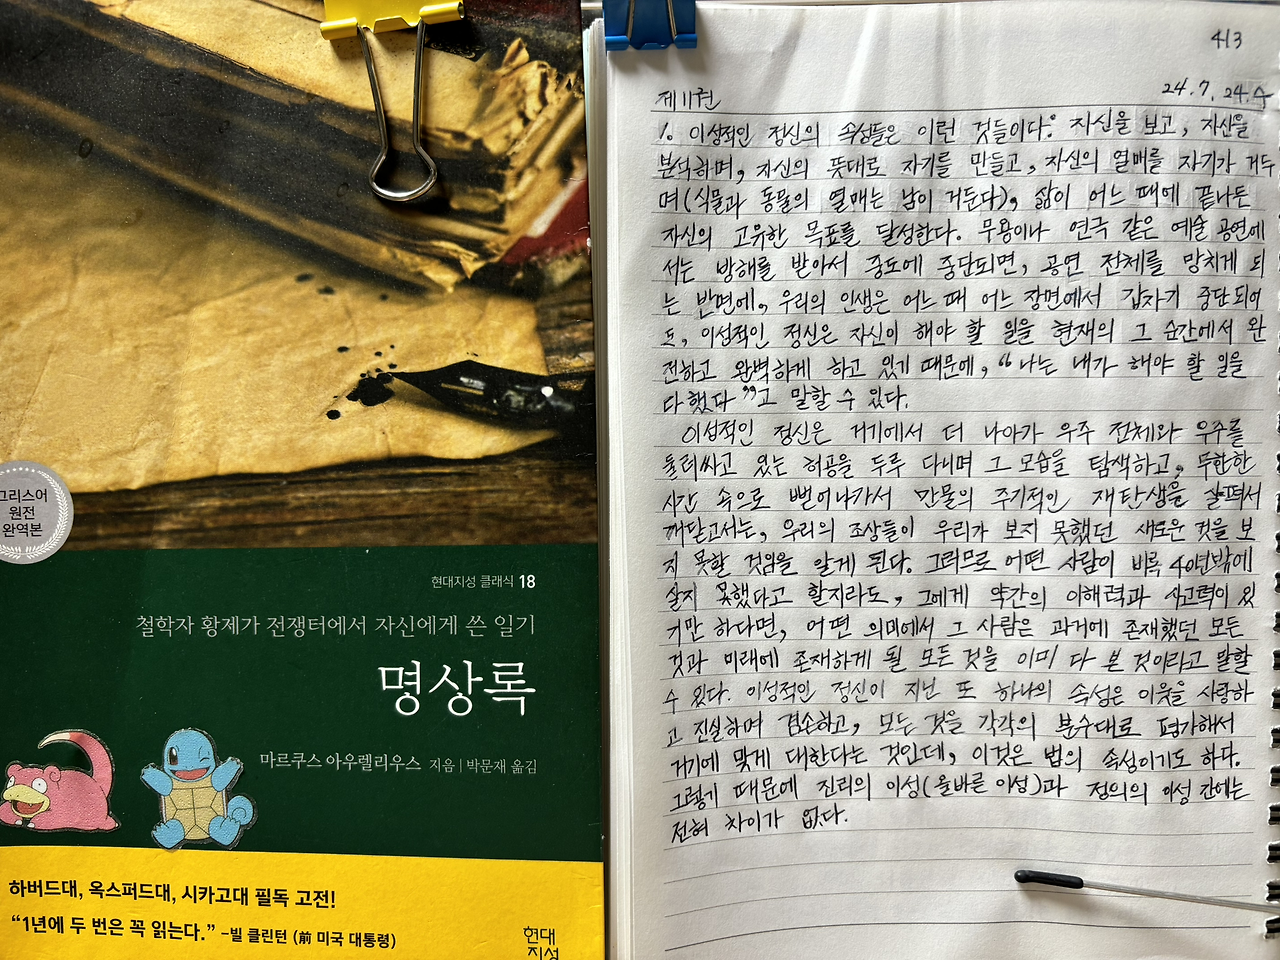 그리스어
원전
완역본
현대지성 클래식 18
철학자 황제가 전쟁터에서 자신에게 쓴 일기
명상록
마르쿠스 아우렐리우스 지음 | 박문재 옮김
하버드대, 옥스퍼드대, 시카고대 필독 고전!
“1년에 두 번은 꼭 읽는다.” -빌 클린턴 (前 미국 대통령)
현대
지성
413
제11권
24. 7. 24. 수
1. 이성적인 정신의 속성들은 이런 것들이다. 자신을 보고, 자신을
분석하며, 자신의 뜻대로 자기를 만들고, 자신의 열매를 자기가 거두
며(식물과 동물의 열매는 남이 거둔다), 삶이 어느 때에 끝나든
자신의 고유한 목표를 달성한다. 무용이나 연극 같은 예술 공연에
서는 방해를 받아서 중도에 중단되면, 공연 전체를 망치게 되
는 반면에, 우리의 인생은 어느 때 어느 장면에서 갑자기 중단되어
도, 이성적인 정신은 자신이 해야 할 일을 현재의 그 순간에서 완
전하고 완벽하게 하고 있기 때문에, “나는 내가 해야 할 일을
다했다”고 말할 수 있다.
이성적인 정신은 거기에서 더 나아가 우주 전체와 우주를
둘러싸고 있는 허공을 두루 다니며 그 모습을 탐색하고, 무한한
시간 속으로 뻗어나가서 만물의 주기적인 재탄생을 살펴서
깨닫고서는, 우리의 조상들이 우리가 보지 못했던 새로운 것을 보
지 못할 것임을 알게 된다. 그러므로 어떤 사람이 비록 40년밖에
살지 못했다고 할지라도, 그에게 약간의 이해력과 사고력이 있
기만 하다면, 어떤 의미에서 그 사람은 과거에 존재했던 모든
것과 미래에 존재하게 될 모든 것을 이미 다 본 것이라고 말할
수 있다. 이성적인 정신이 지닌 또 하나의 속성은 이웃을 사랑하
고 진실하며 겸손하고, 모든 것을 각각의 분수대로 평가해서
거기에 맞게 대한다는 것인데, 이것은 법의 속성이기도 하다.
그렇기 때문에 진리의 이성(올바른 이성)과 정의의 이성 간에는
전혀 차이가 없다.